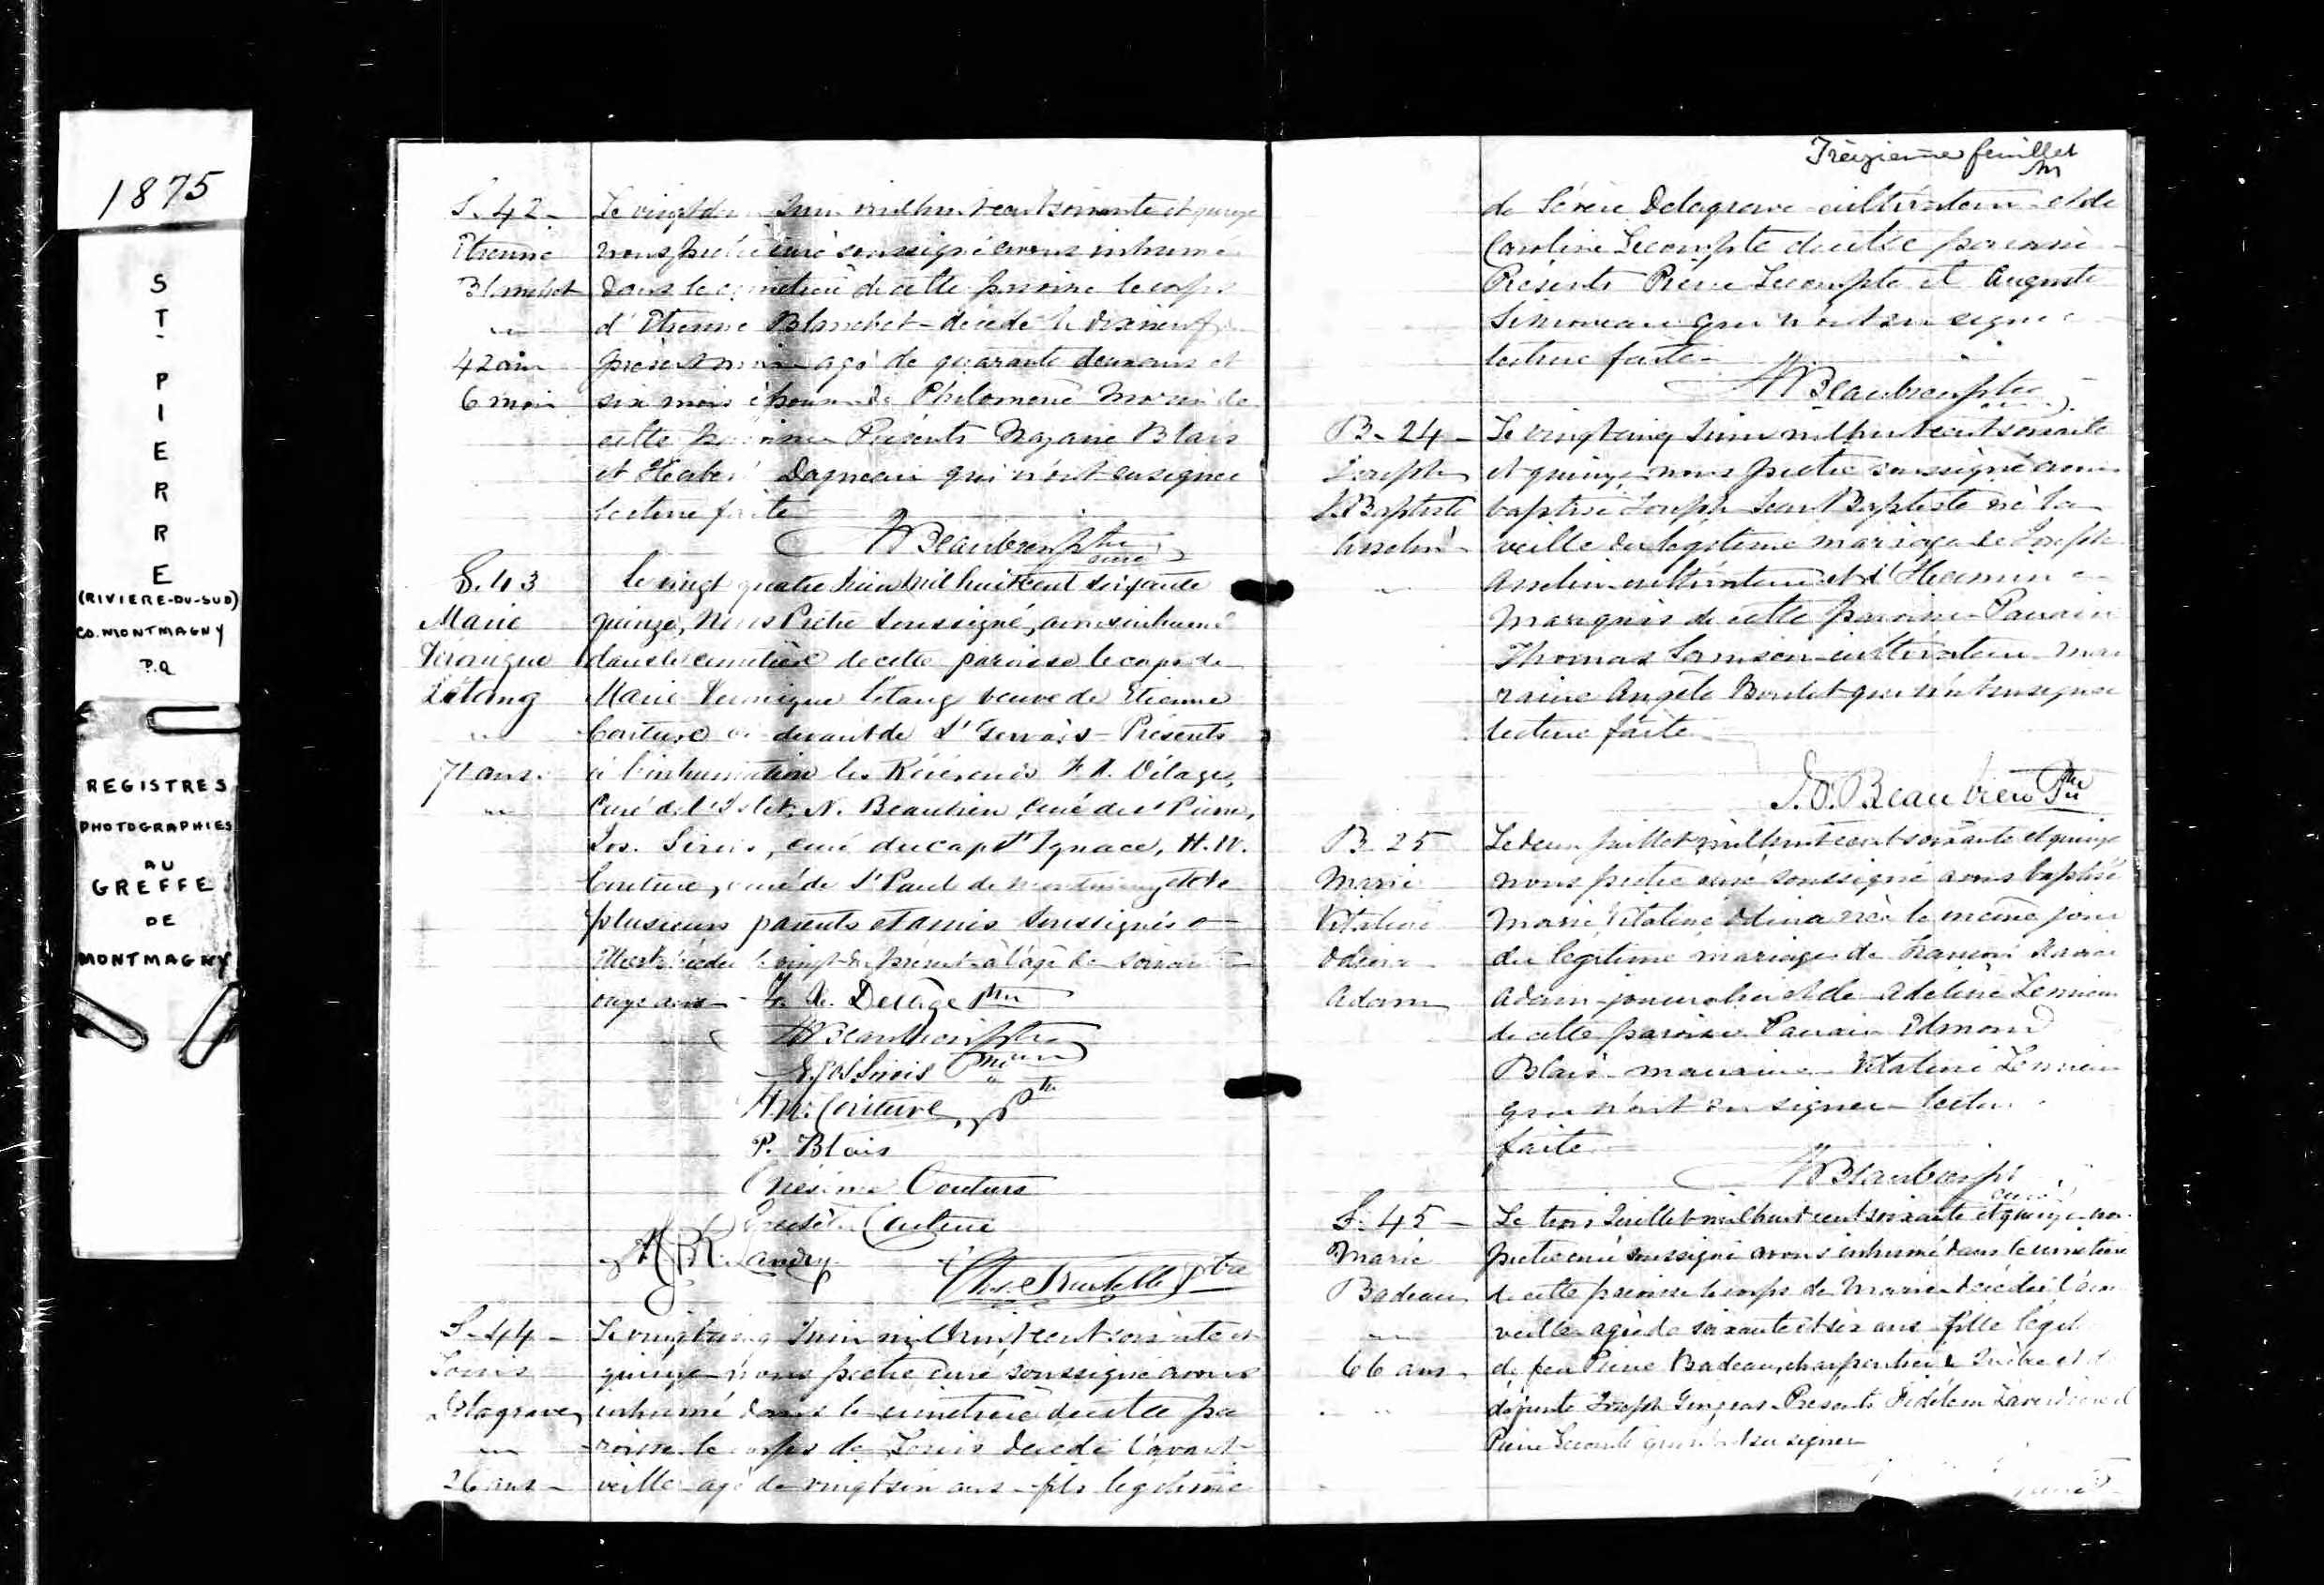 1875
ST-PIERRE
(RIVIERE-DU-SUD)
CO. MONTMAGNY
P.Q
REGISTRES
PHOTOGRAPHIES
AU
GREFFE
DE
MONTMAGNY
S. 42 -
Etienne
Blanchet
42 ans
6 mois
Le vingt Juin mil huit cent soixante et quinze
nous curé soussigné avons inhumé
dans le cimetière de cette paroisse le corps
d'Etienne Blanchet - décédé le dixneuf
présent mois agé de quarante deux ans et
six mois époux de Philomène Morin de
cette paroisse Présents Nazaire Blais
et Dagneau qui n'ont su signer
lecture faite
N Beaubien Ptre
curé
S. 43
Marie
Véronique
Létang
71 ans.
Le vingt quatre Juin mil huit cent soixante
quinze, Nous Prêtre soussigné, avons inhumé
dans le cimetière de cette paroisse le corps de
Marie Veronique Létang veuve de Etienne
Couture ci-devant de St Gervais - Présents
à l'inhumation les Révérends F. X. Délage,
Curé de l'Islet, N. Beaubien, Curé de St Pierre,
Jos. Sirois, curé du cap St Ignace, H. W.
Couture, curé de St Paul de et de
plusieurs parents et amis soussignés
décédée le présent à l'âge de soixante
onze ans - F. X. Delâge Ptre
N Beaubien Ptre
Sirois Ptre
Couture, Ptre
P. Blais
Onésime Couture
Couture
Landry
Ptre
S. 44 -
Louis
Delagrave
26 ans -
Le vingt cinq Juin mil huit cent soixante et
quinze nous prêtre curé soussigné avons
inhumé dans le cimetière de cette pa
roisse le corps de Louis décédé l'avant
veille agé de vingt six ans - fils legitime
Treizieme feuillet
de Sévère Delagrave cultivateur et de
Caroline Lecompte de cette paroisse
Présents Pierre Lecompte et Auguste
Simoneau qui n'ont su signer
lecture faite -
N Beaubien Ptre
B - 24 -
Joseph
J. Baptiste
Anselin
Le vingt cinq Juin mil huit cent soixante
et quinze nous prêtre soussigné avons
baptisé Joseph Jean Baptiste né la
veille du légitime mariage de Joseph
Anselin cultivateur et d'
Marquis de cette paroisse - Parrain
Thomas Samson cultivateur mar
raine Angèle qui n'ont su signer
lecture faite
Beaubien Ptre
B. 25
Marie
Vitaline
Odina
Adam
Le deux Juillet mil huit cent soixante et quinze
nous prêtre curé soussigné avons baptisé
Marie Vitaline Odina née le même jour
du legitime mariage de François
Adam journalier et de Adeline Lemieux
de cette paroisse Parrain Edmond
Blais - marraine - Vitaline Lemieux
qui n'ont su signer - lecture
faite
N Beaubien Ptre
curé
S. 45 -
Marie
Badeau
66 ans
Le trois Juillet mil huit cent soixante et quinze nous
prêtre curé soussigné avons inhumé dans le cimetière
de cette paroisse le corps de Marie décédée l'avant
veille agée de soixante et six ans - fille légit
de feu Pierre Badeau, charpentier de
défunte Présents
Pierre Lecomte qui n'ont su signer